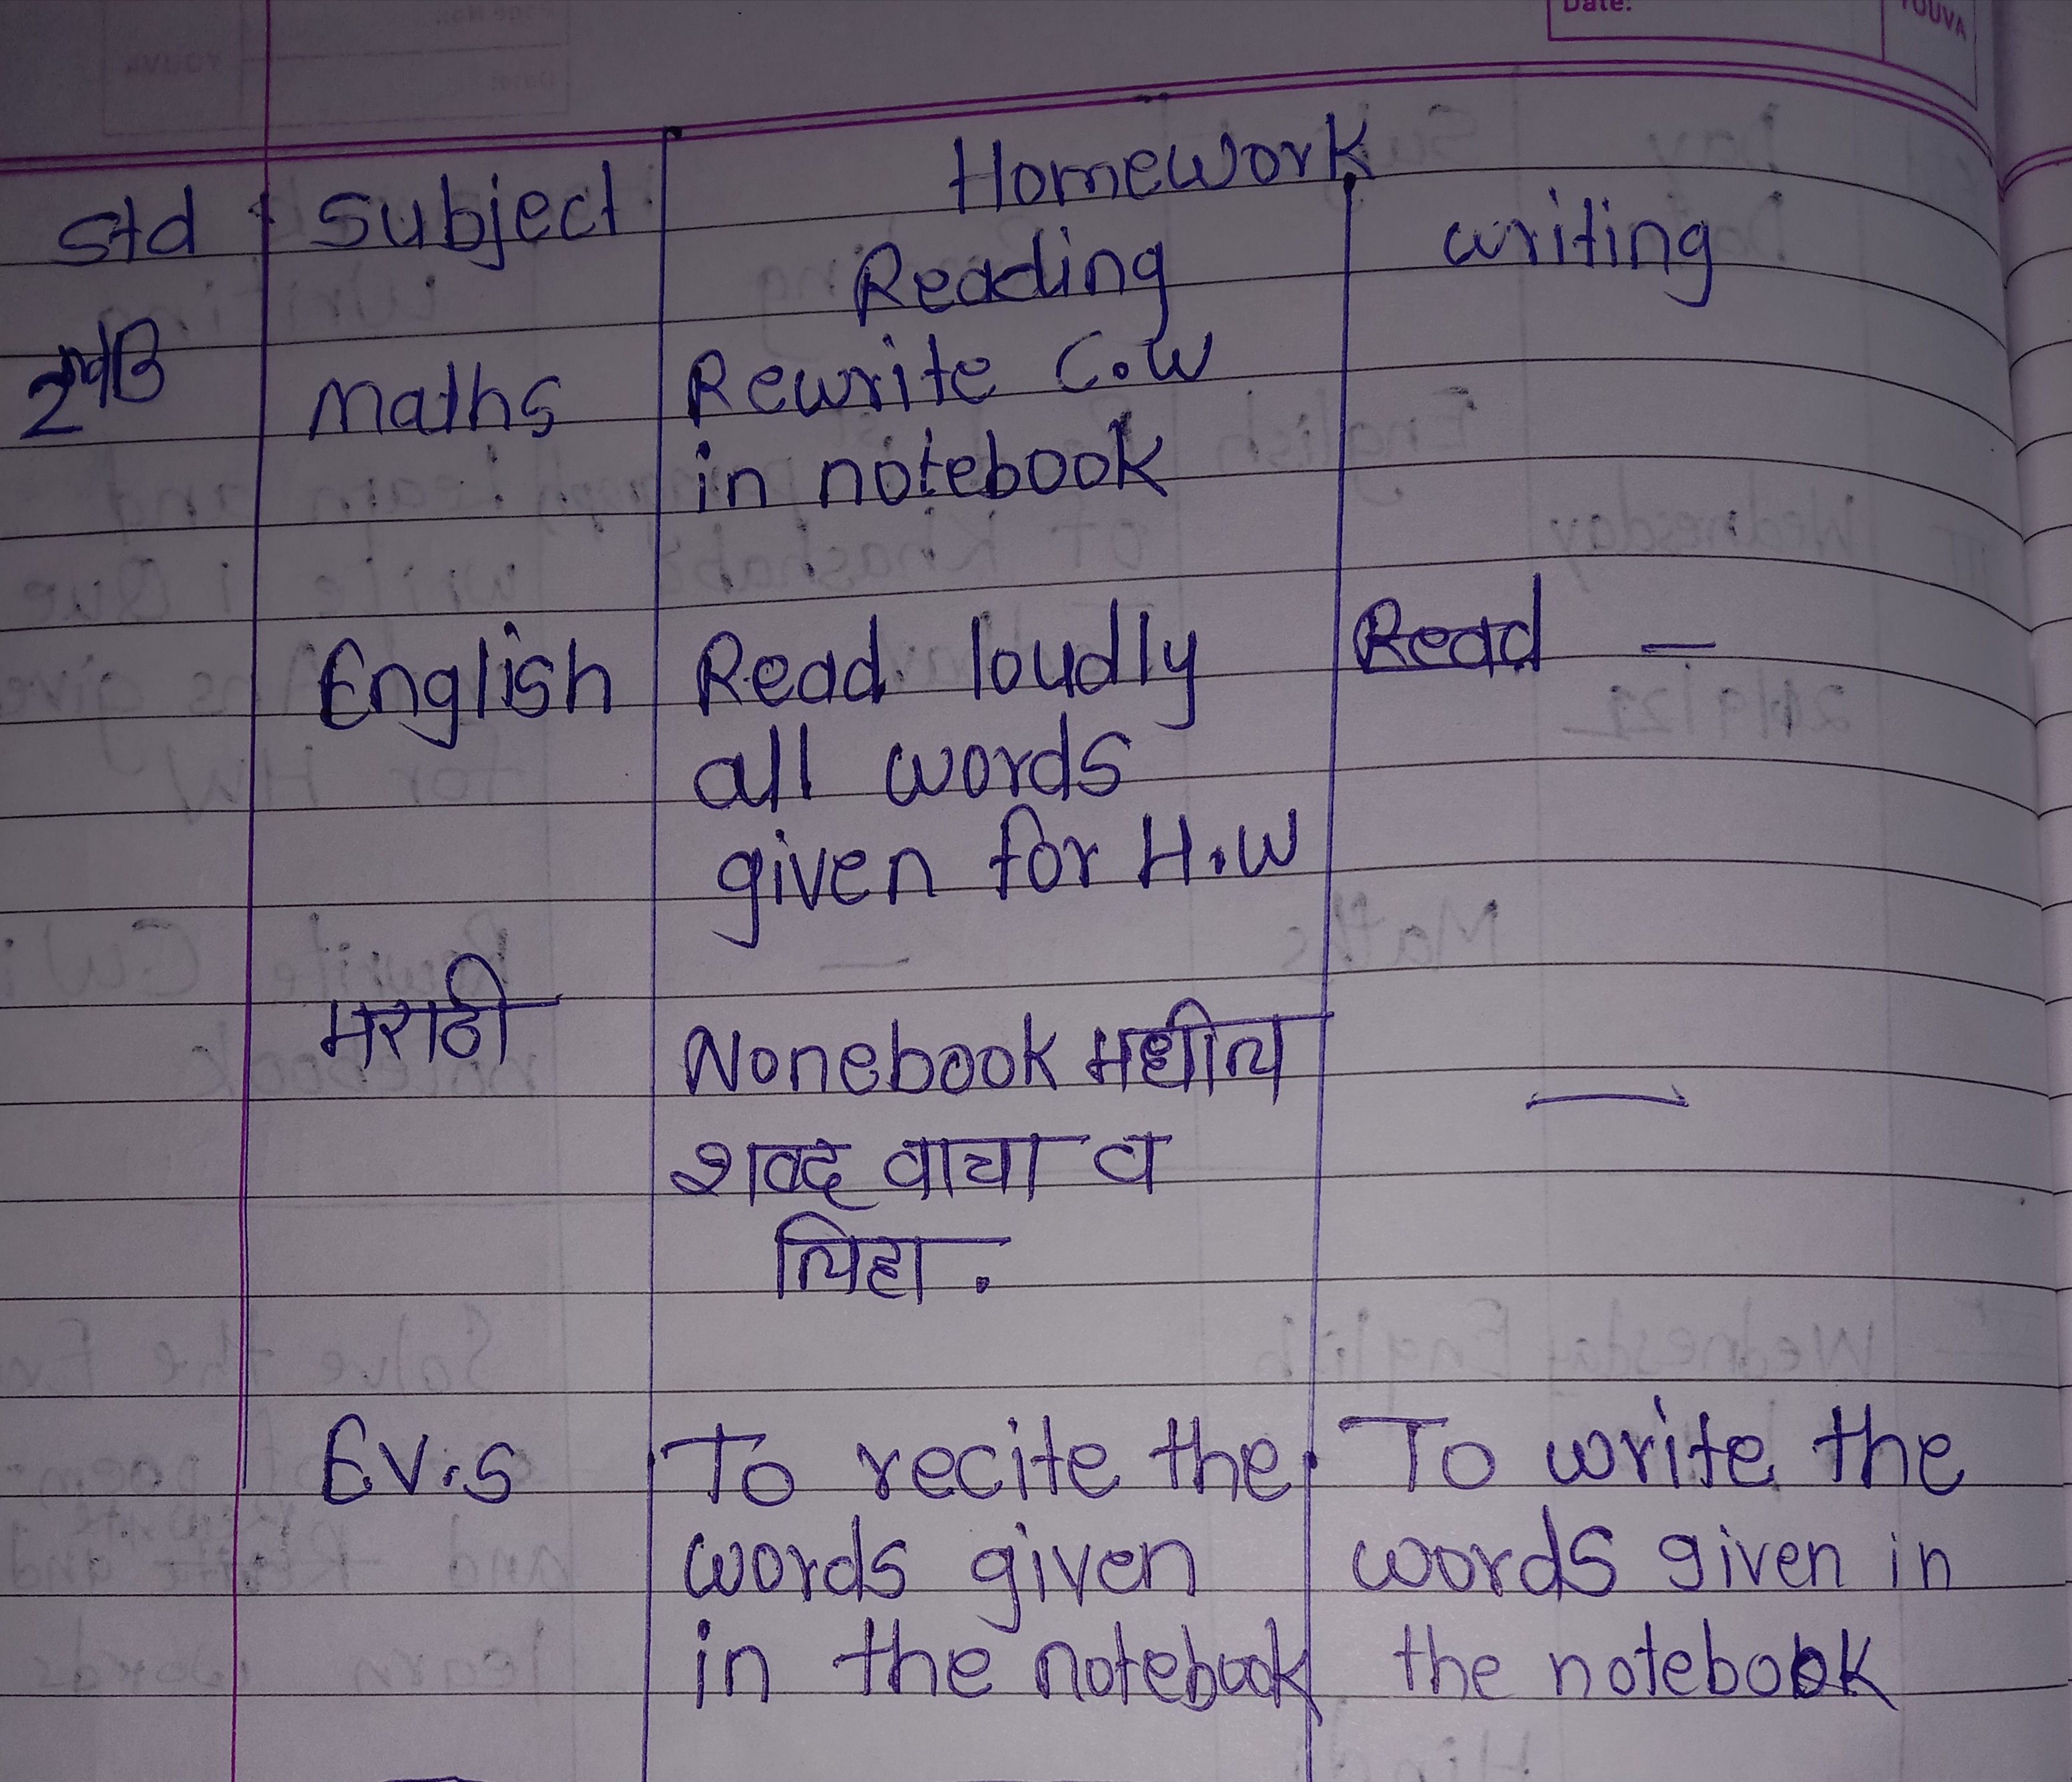 Date:
YOUVA
Homework
Std Subject Reading writing
2nd B Maths Rewrite C.W
in notebook
English Read loudly Read —
all words
given for H.W
मराठी Nonebook मधील —
शब्द वाचा व
लिहा.
EV.S To recite the To write the
words given words given in
in the notebook the notebook